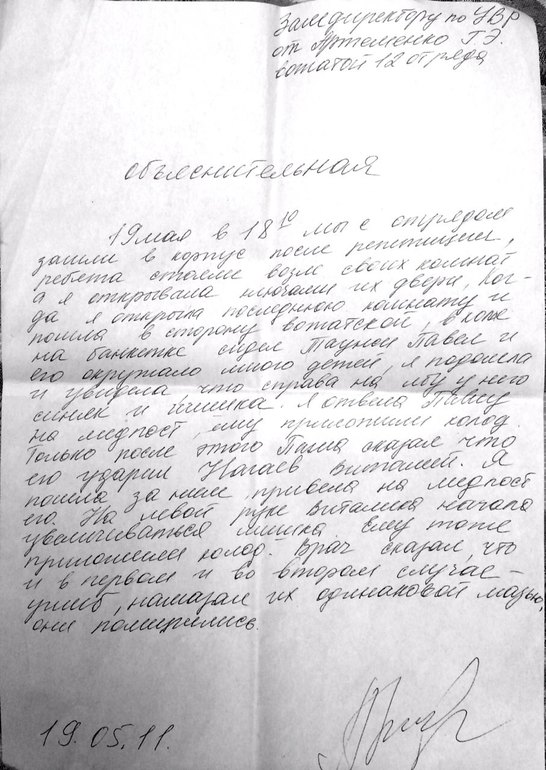 Замдиректору по УВР
от Артеменко Г.Э.
вожатой 12 отряда
объяснительная
19 мая в 18 10 мы с отрядом
зашли в корпус после репетиции,
ребята стояли возле своих комнат
а я открывала ключами их двери, ког-
да я открыла последнюю комнату и
пошла в сторону вожатской, в холе
на банкетке сидел Павел и
его окружало много детей, я подошла
и увидела, что справа на лбу у него
синяк и шишка. Я отвела Пашу
на медпост, ему приложили холод.
Только после этого Паша сказал что
его ударил Нагаев Виталий. Я
пошла за ним, привела на медпост
его. На левой руке Виталика начала
увеличиваться шишка ему тоже
приложили холод. Врач сказал, что
и в первом и во втором случае –
ушиб, намазал их одинаковой мазью,
они помирились.
19.05.11.